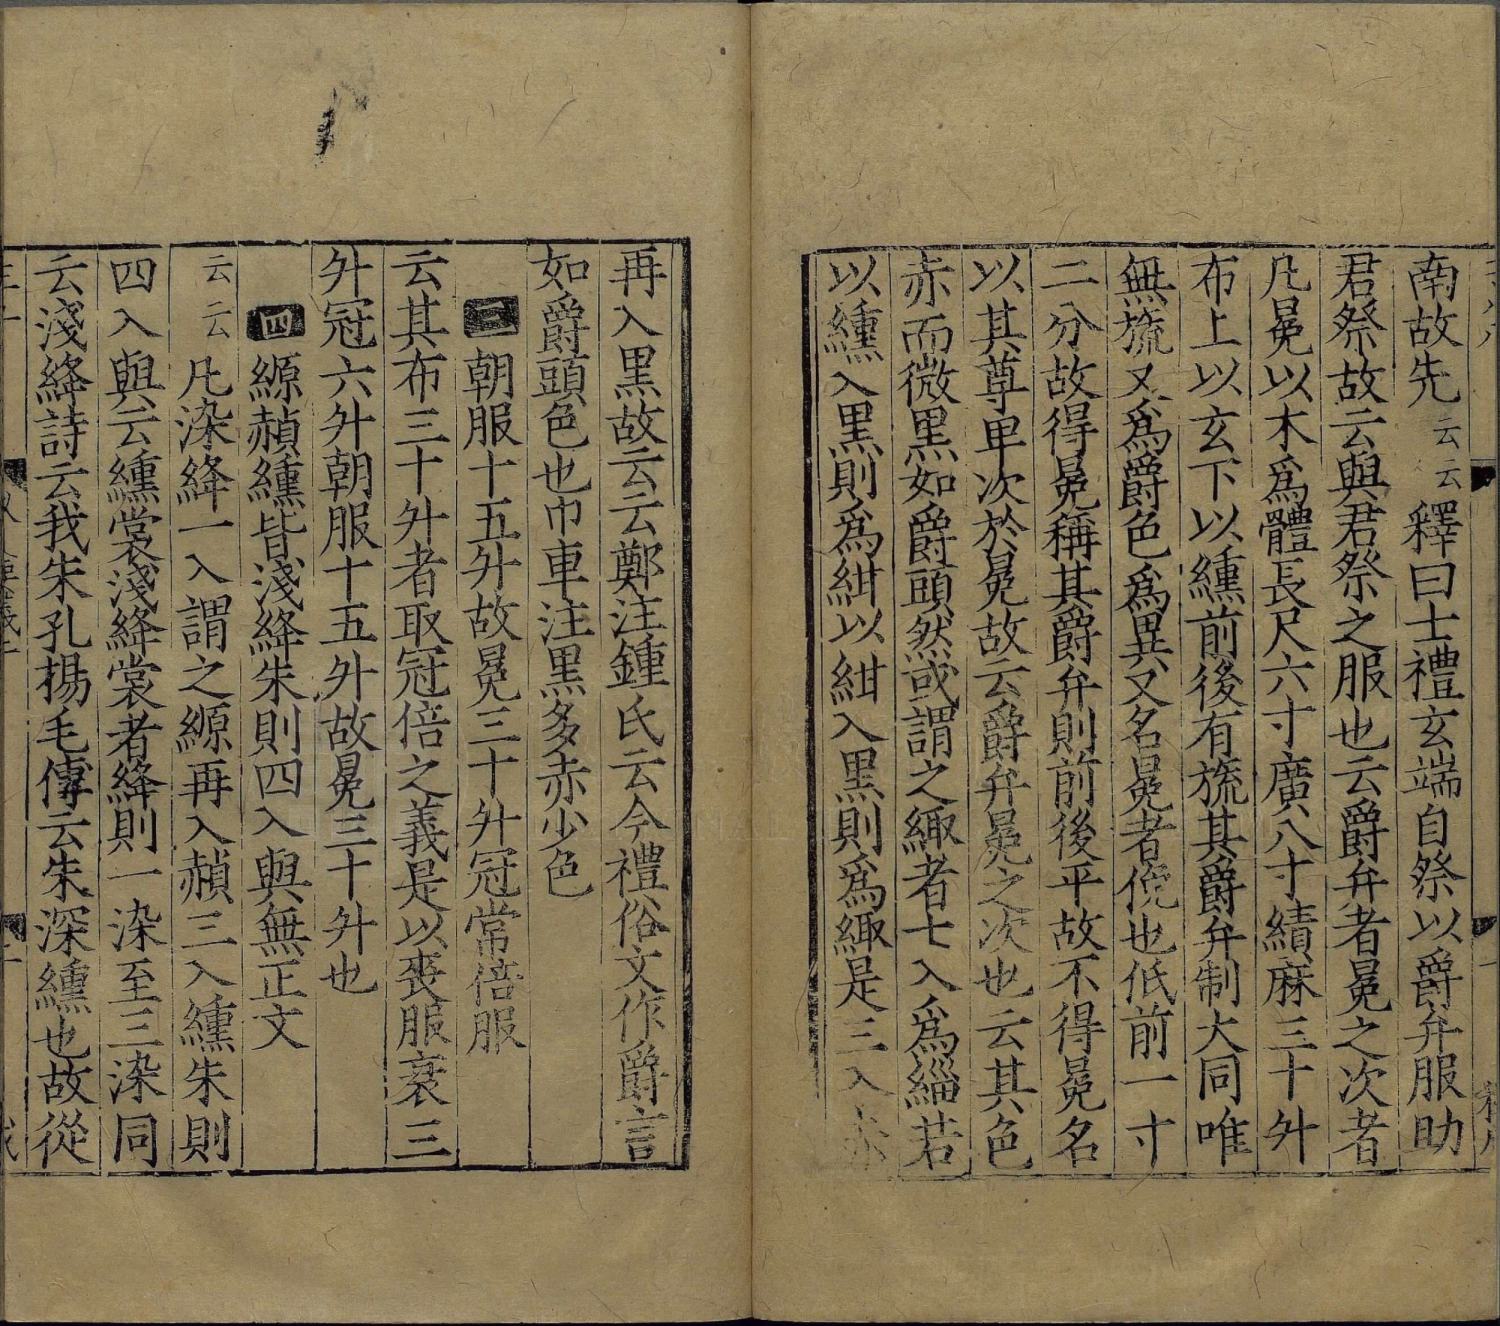 南故先云云釋曰士禮玄端自祭以爵弁服助
君祭故云與君祭之服也云爵弁者冕之次者
凡冕以木爲體長尺六寸廣八寸績麻三十升
布上以玄下以纁前後有旒其爵弁制大同唯
無旒又爲爵色爲異又名冕者俛也低前一寸
二分故得冕稱其爵弁則前後平故不得冕名
以其尊卑次於冕故云爵弁冕之次也云其色
赤而微黑如爵頭然或謂之緅者七入爲緇若
以纁入黑則爲紺以紺入黑則爲緅是三入赤
再入黑故云云鄭注鍾氏云今禮俗文作爵言
如爵頭色也巾車注黑多赤少色
三朝服十五升故冕三十升冠常倍服
云其布三十升者取冠倍之義是以喪服衰三
升冠六升朝服十五升故冕三十升也
四縓赬纁皆淺絳朱則四入與無正文
云云凡染絳一入謂之縓再入赬三入纁朱則
四入與云纁裳淺絳裳者絳則一染至三染同
云淺絳詩云我朱孔揚毛傳云朱深纁也故從